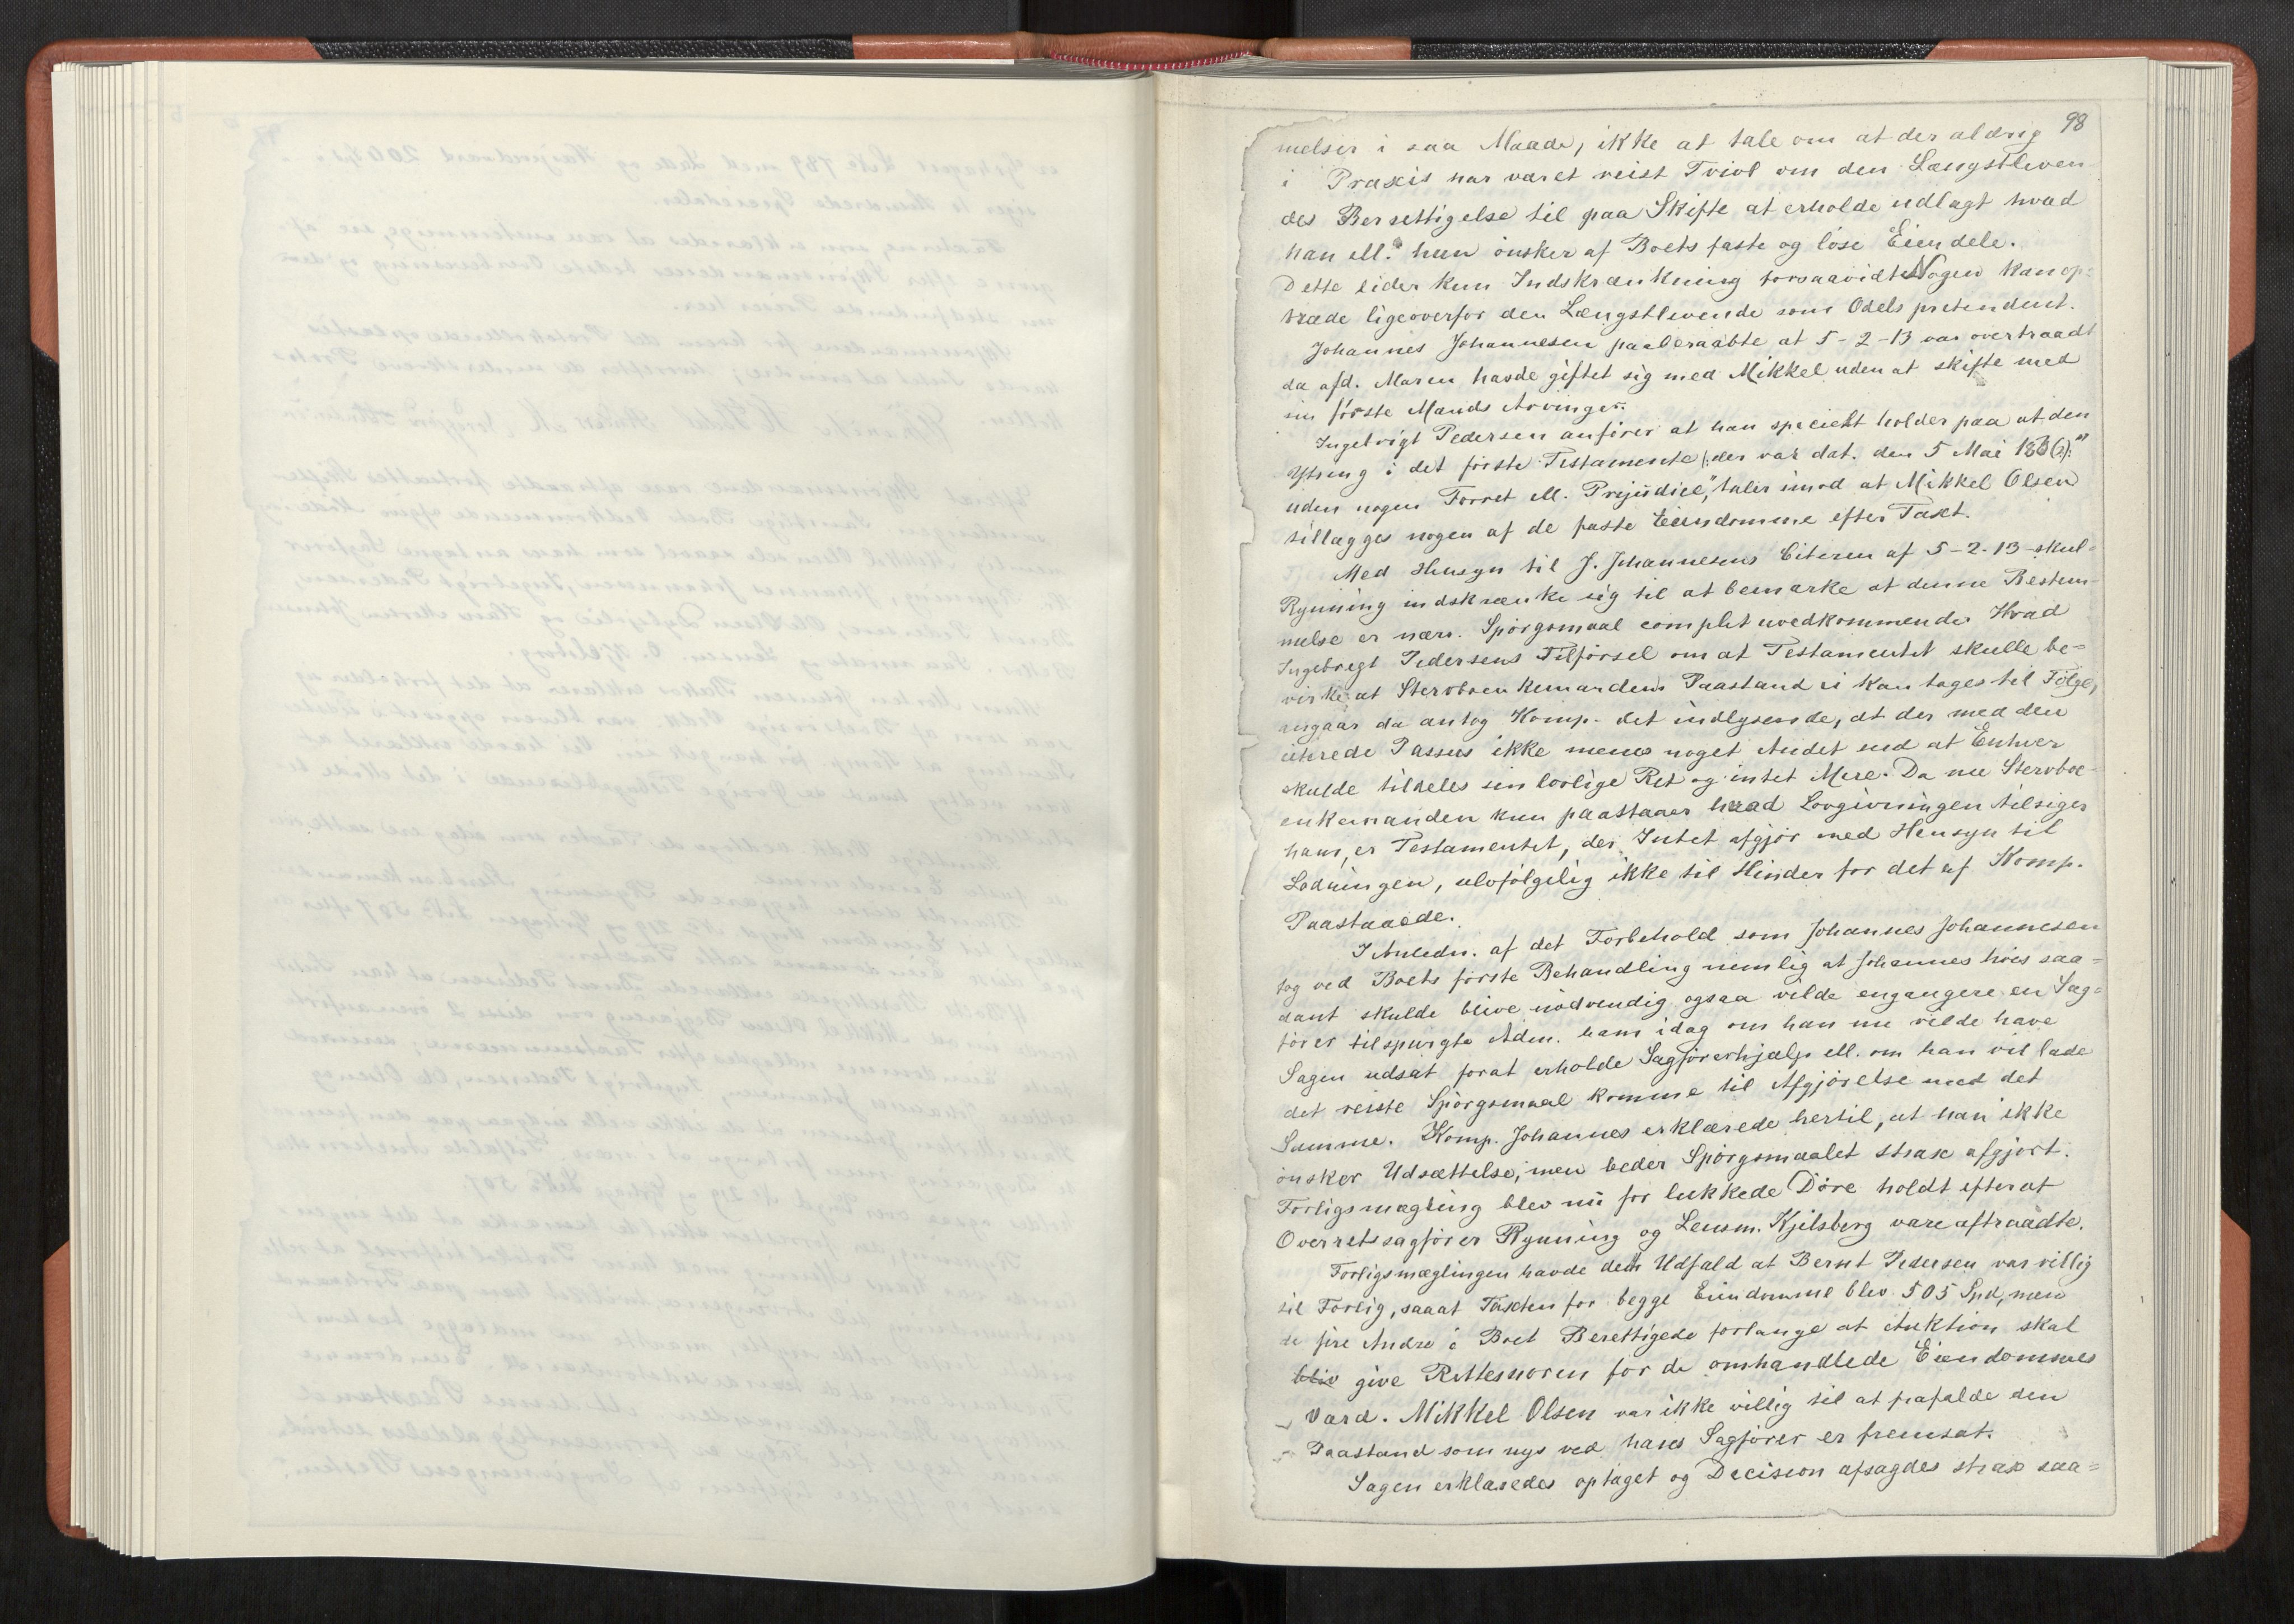 98
melser i saa Maade, ikke at tale om at der aldrig
i Praxis har været reist Tvivl om den Længstleven
des Berettigelse til paa Skifte at erholde udlagt hvad
han ell. hun ønsker af Boets faste og löse Eiendele.
Dette lider kun Indskrænkning forsaavidt Nogen kan op-
træde ligeoverfor den Længstlevende som Odels pretendent.
Johannes Johannesen paaberaabte at 5-2-13 var overtraadt
da afd. Maren havde giftet sig med Mikkel uden at skifte med
sin förste Mands Arvinger.
Ingebrigt Pedersen anförer at han specielt holder paa at den
Ytring i det förste Testamente (: der var dat. den 5 Mai 186(?):"
uden nogen Forret ell. Prejudice", taler imod at Mikkel Olsen
tillægges nogen af de faste Eiendomme efter Taxt.
Med Hensyn til J. Johannesens Citeren af 5-2-13 skul-
Rynning indskrænke sig til at bemærke at denne Bestem-
melse er nærv. Spörgsmaal complet uvedkommende. Hvad
Ingebregt Pedersens Tilförsel om at Testamentet skulle be-
virke at Stervboenkemandens Paastand ei kan tages til Fölge,
angaar da antog Komp. det indlysende, at der med den
citerede Passus ikke menes noget Andet end at Enhver
skulde tildeles sin lovlige Ret og intet Mere. Da nu Stervbo-
enkemanden kun paastaaer hvad Lovgivningen tilsiger
ham, er Testamentet, der Intet afgjör med Hensyn til
Lodningen, selvfölgelig ikke til Hinder for det af Komp.
Paastaaede.
I Anledn. af det Forbehold som Johannes Johannesen
tog ved Boets förste Behandling nemlig at Johannes hvis saa-
dant skulde blive nödvendig ogsaa vilde engangere en Sag-
förer tilspurgte Adm. ham idag om han nu vilde have
Sagen udsat forat erholde Sagförerhjælp ell. om han vil lade
det reiste Spörgsmaal komme til Afgjörelse med det
Samme. Komp. Johannes erklærede hertil, at han ikke
önsker Udsættelse, men beder Spörgsmaalet strax afgjort.
Forligsmægling blev nu for lukkede Döre holdt efterat
Overretssagförer Rynning og Lensm. Kjelsberg vare aftraadte.
Forligsmæglingen havde det Udfald at Bernt Pedersen var villig
til Forlig, saaat Taxten for begge Eiendomme blev 505 Spd, men
de fire Andre i Boet Berettigede forlange at Auktion skal
bliv give Rettesnoren for de omhandlede Eiendommes
Værd. Mikkel Olsen var ikke villig til at frafalde den
Paastand som nys ved hans Sagförer er fremsat.
Sagen erklæredes optaget og Decision afsagdes strax saa-